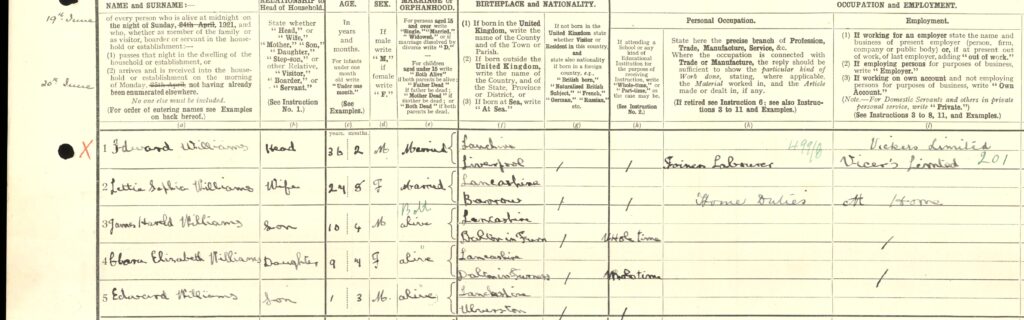 19th June
20th June
NAME and SURNAME:—
of every person who is alive at midnight on
the night of Sunday, 24th April, 1921, and
who, whether as member of the family or
as visitor, boarder or servant in the house-
hold or establishment:—
(1) passes that night in the dwelling of the
household or establishment, or
(2) arrives and is received into the house-
hold or establishment on the morning
of Monday, 25th April not having already
been enumerated elsewhere.
No one else must be included.
(For order of entering names see Examples
on back hereof.)
(a)
RELATIONSHIP
to Head of Household.
State whether
"Head," or
"Wife,"
"Mother," "Son,"
"Daughter,"
"Step-son," or
other Relative,
"Visitor,"
"Boarder," or
"Servant."
(See Instruction
No. 1.)
(b)
AGE.
In
years
and
months.
For infants
under one
month
old write
"Under one
month."
(See
Examples).
(c)
SEX.
If
male
write
"M,"
If
female
write
"F."
(d)
MARRIAGE or
ORPHANHOOD.
For persons aged 15
and over write
"Single," "Married,"
"Widowed," or if
marriage dissolved by
divorce write "D."
For children
aged under 15 write
"Both Alive"
if both parents be alive;
"Father Dead"
if father be dead;
"Mother Dead" if
mother be dead; or
"Both Dead" if both
parents be dead.
(e)
BIRTHPLACE and NATIONALITY.
(1) If born in the United
Kingdom, write the
name of the County
and of the Town or
Parish.
(2) If born outside the
United Kingdom, write
the name of the
Country, and of
the State, Province
or District.
(3) If born at Sea, write
"At Sea."
(f)
If not born in the
United Kingdom
state whether Visitor or
Resident in this country,
and
state nationality if
born in a foreign
country, e.g.,
"British born,"
"Naturalised British
Subject," "French,"
"German," "Russian,"
etc.
(g)
If attending a
School or any
kind of
Educational
Institution for
the purpose of
receiving
instruction, write
"Whole-time," or
"Part-time," as
the case may be.
(See Instruction
No. 2.)
(h)
OCCUPATION and EMPLOYMENT.
Personal Occupation.
State here the precise branch of Profession,
Trade, Manufacture, Service, &c.
Where the occupation is connected with
Trade or Manufacture, the reply should be
sufficient to show the particular kind of
Work done, stating, where applicable,
the Material worked in, and the Article
made or dealt in, if any.
(If retired see Instruction 6; see also Instruc-
tions 3 to 11 and Examples.)
(k)
Employment.
(1) If working for an employer state the name and
business of present employer (person, firm,
company or public body) or, if at present out
of work, of last employer, adding "out of work."
(2) If employing persons for purposes of business
write "Employer."
(3) If working on own account and not employing
persons for purposes of business, write "Own
Account."
(Note.—For Domestic Servants and others in private
personal service, write "Private.")
(See Instructions 3 to 8, 11, and Examples.)
(l)
years. months.
X 1 Edward Williams Head 36 2 M Married Liverpool / / Labourer Vickers Limited 201
2 Lettie Sophia Williams Wife 29 5 F Married Lancashire
Barrow / / Home Duties At Home
3 James Harold Williams Son 10 4 M Both alive Lancashire
Dalton in Furn / Whole time /
4 Clara Elizabeth Williams Daughter 9 4 F alive " Lancashire
Dalton in Furness / Whole time /
5 Edward Williams Son 1 3 M. alive " Lancashire
Ulverston / /